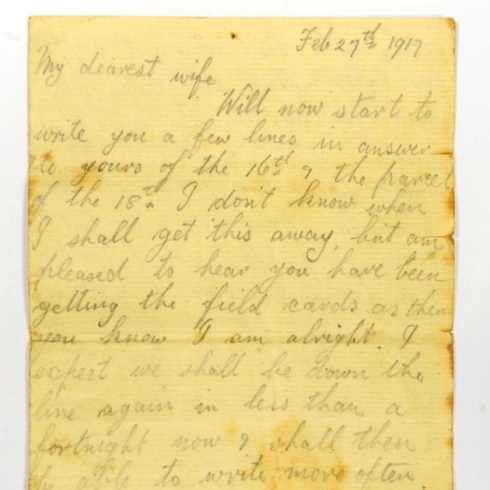 Feb 27th 1917
My dearest wife
Will now start to
write you a few lines in answer
to yours of the 16th & the parcel
of the 18th I don't know when
I shall get this away, but am
pleased to hear you have been
getting the field cards as then
you know I am alright. I
expect we shall be down the
line again in less than a
fortnight now & shall then
be able to write more often.